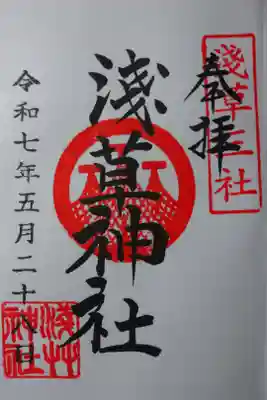 淺草三社
奉拝
淺草神社
令和七年五月二十八日
淺草
神社